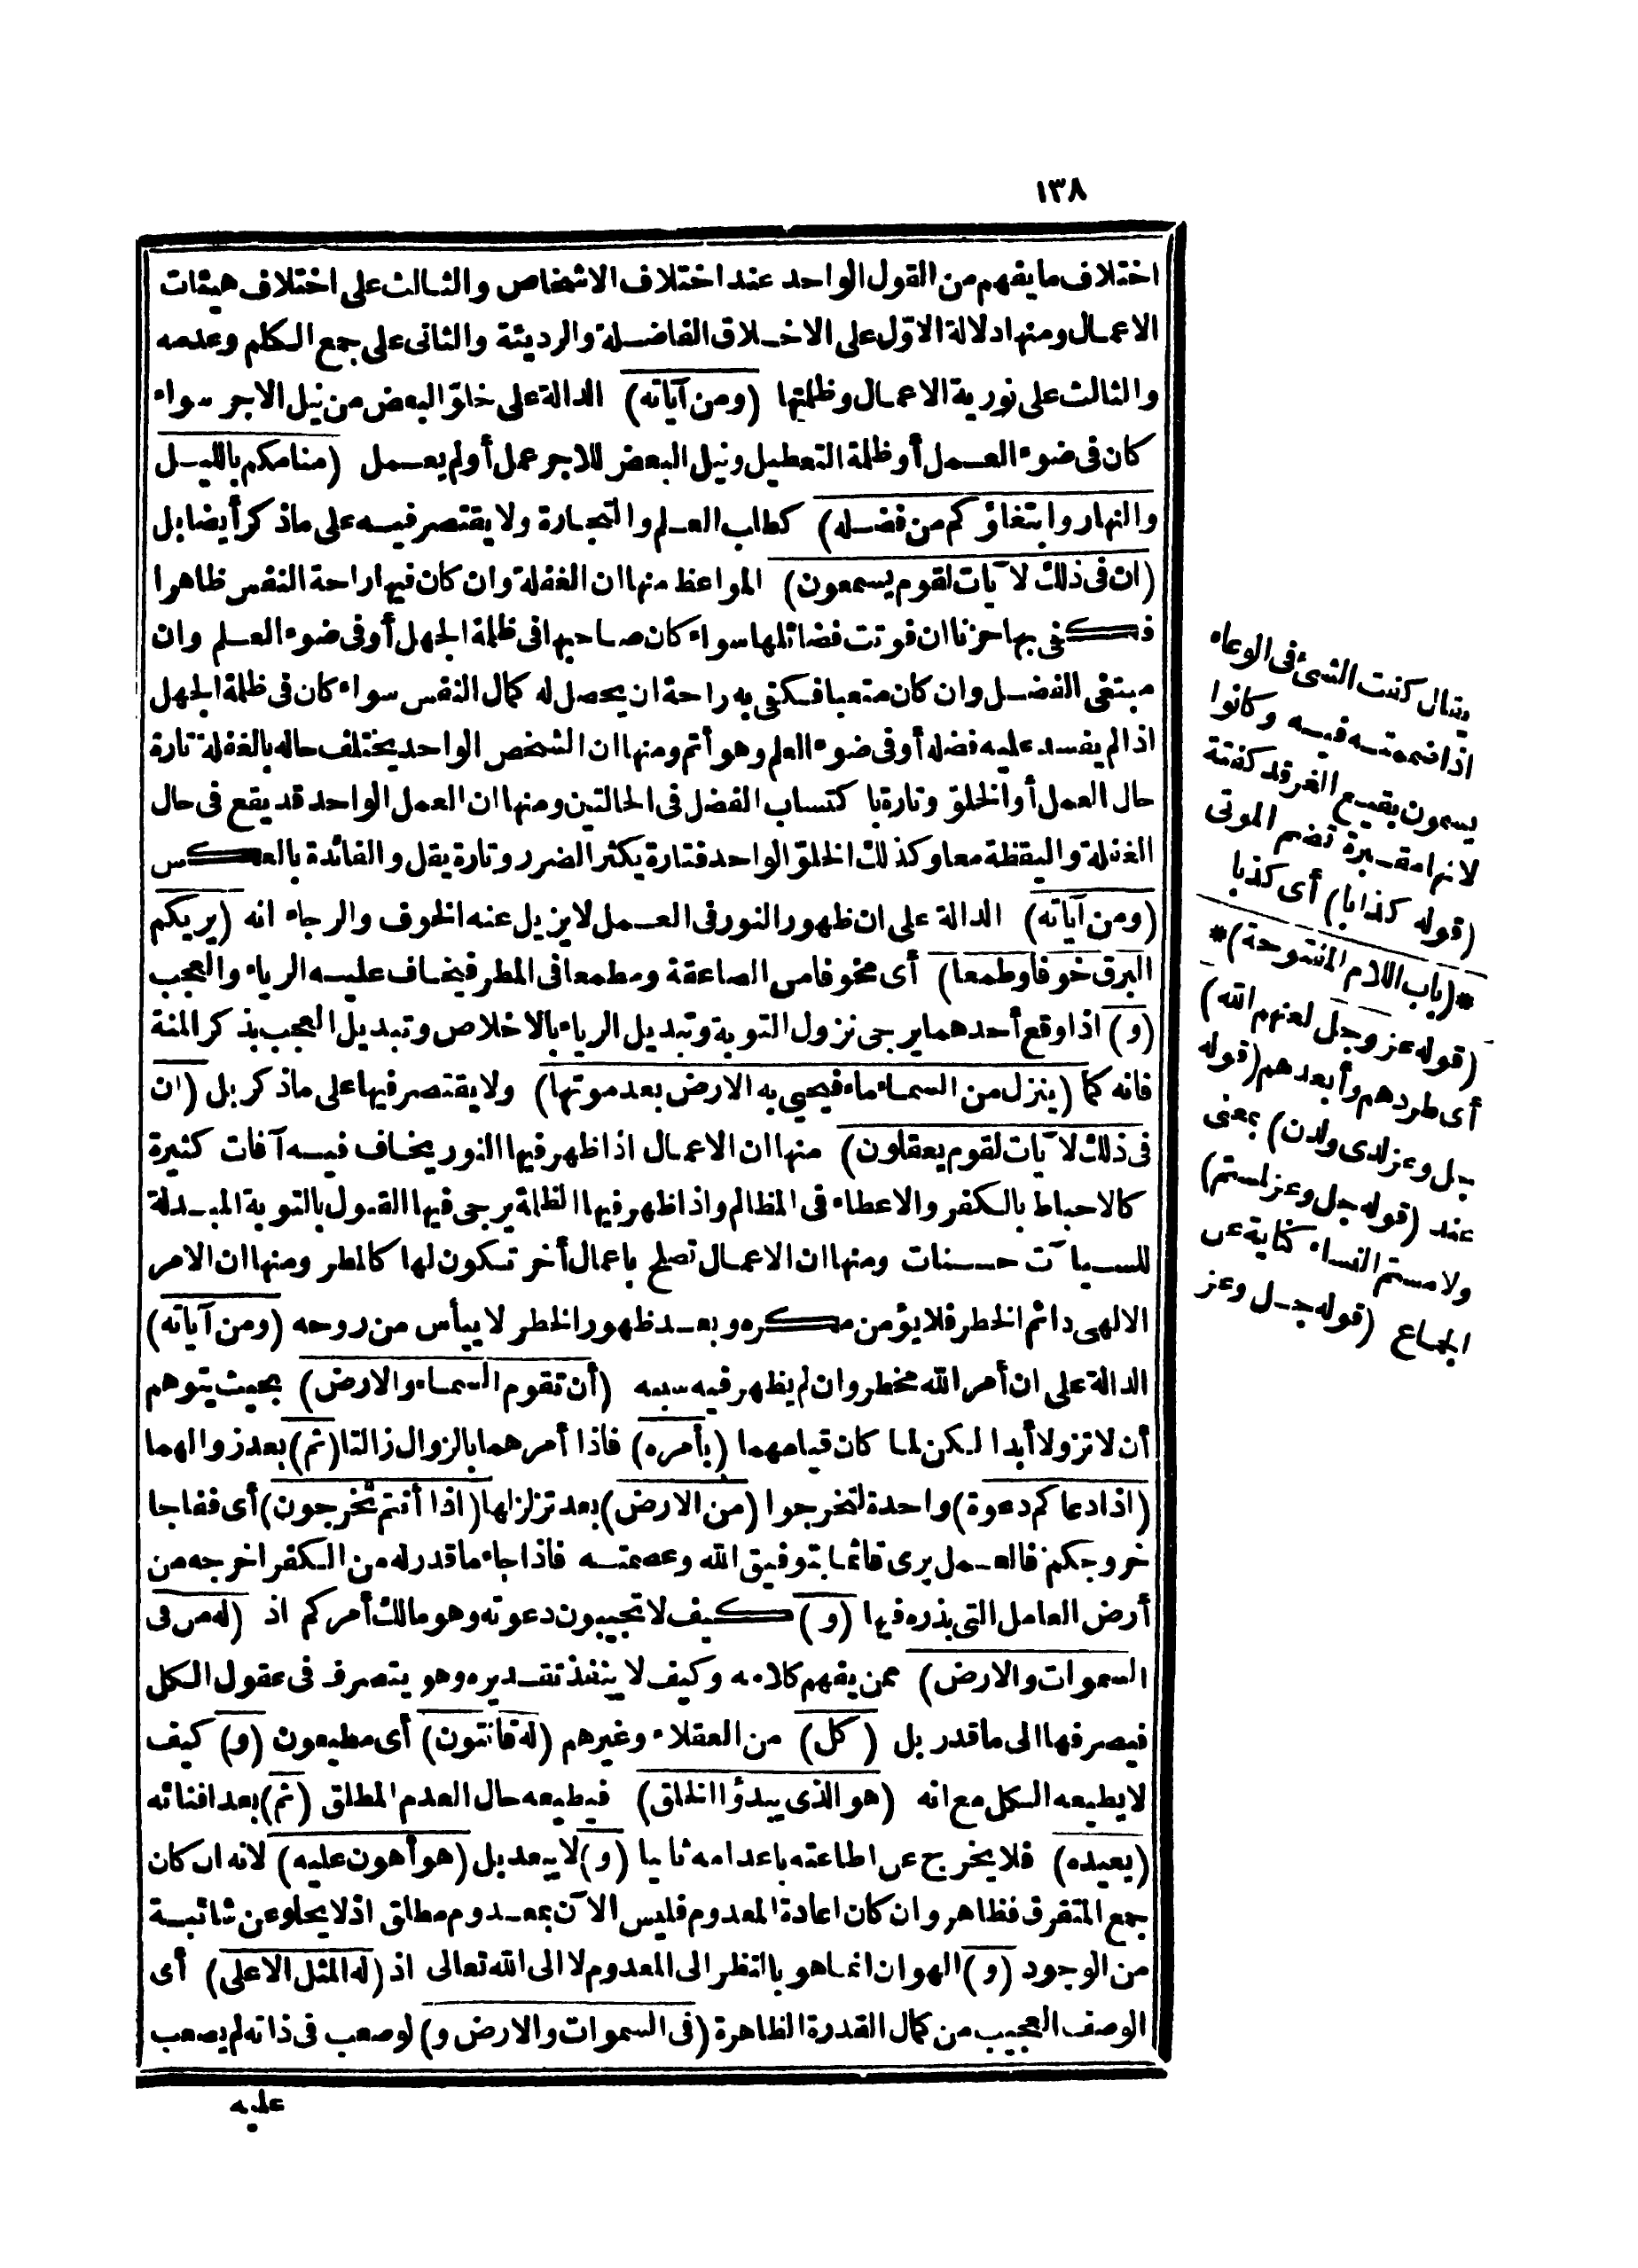 ١٣٨
اختلاف ما يفهم من القول الواحد عند اختلاف الاشخاص والثالث على اختلاف هيئات
الاعمال ومنها دلالة الاوّل على الاخلاق الفاضلة والرديئة والثانى على جمع الكلم وعدمه
والثالث على نورية الاعمال وظلمتها (ومن آياته) الدالة على خلوّ البعض من نيل الاجر سواء
كان فى ضوء العمل أو ظلمة التعطيل ونيل البعض للاجر عمل أو لم يعمل (منامكم بالليل
والنهار وابتغاؤكم من فضله) كطلب العلم والتجارة ولا يقتصر فيه على ما ذكر أيضا بل
(ان فى ذلك لآيات لقوم يسمعون) المواعظ منها ان الغفلة وان كان فيها راحة النفس ظاهرا
فكفى بها حزنا ان فوتت فضائلها سواء كان صاحبها فى ظلمة الجهل أو فى ضوء العلم وان
مبتغى الفضل وان كان متعبا فكفى به راحة ان يحصل له كمال النفس سواء كان فى ظلمة الجهل
اذا لم يفسد عليه فضله أو فى ضوء العلم وهو أتم ومنها ان الشخص الواحد يختلف حاله بالغفلة تارة
حال العمل أو الخلق وتارة با كتساب الفضل فى الحالتين ومنها ان العمل الواحد قد يقع فى حال
الغفلة واليقظة معا وكذلك الخلق الواحد فتارة يكثر الضرر وتارة يقل والفائدة بالعكس
(ومن آياته) الدالة على ان ظهور النور فى العمل لا يزيل عنه الخوف والرجاء انه (يريكم
البرق خوفا وطمعا) أى مخوفا من الصاعقة ومطمعا فى المطر فيخاف عليه الرياء والعجب
(و) اذا وقع أحدهما يرجى نزول التوبة وتبديل الرياء بالاخلاص وتبديل العجب بذكر المنة
فانه كما (ينزل من السماء ماء فيحيي به الارض بعد موتها) ولا يقتصر فيها على ما ذكر بل (ان
فى ذلك لآيات لقوم يعقلون) منها ان الاعمال اذا ظهر فيها النور يخاف فيه آفات كثيرة
كالاحباط بالكفر والاعطاء فى المظالم واذا ظهر فيها الظلمة يرجى فيها القبول بالتوبة المبدلة
للسيآت حسنات ومنها ان الاعمال تصلح باعمال أخر تكون لها كالمطر ومنها ان الامر
الالهى دائم الخطر فلا يؤمن مكره وبعد ظهور الخطر لا ييأس من روحه (ومن آياته)
الدالة على ان أمر الله مخطر وان لم يظهر فيه سببه (أن تقوم السماء والارض) بحيث يتوهم
أن لا تزولا أبدا لكن لما كان قيامهما (بأمره) فاذا أمرهما بالزوال زالتا (ثم) بعد زوالهما
(اذا دعاكم دعوة) واحدة لتخرجوا (من الارض) بعد تزلزلها (اذا أنتم تخرجون) أى ففاجا
خروجكم فالعمل يرى قائما بتوفيق الله وعصمته فاذا جاء ما قدر له من الكفر اخرجه من
أرض العامل التى بذره فيها (و) كيف لا تجيبون دعوته وهو مالك أمركم اذ (له من فى
السموات والارض) ممن يفهم كلامه وكيف لا ينفذ تقديره وهو يتصرف فى عقول الكل
فيصرفها الى ما قدر بل (كل) من العقلاء وغيرهم (له قانتون) أى مطيعون (و) كيف
لا يطيعه الكل مع انه (هو الذى يبدؤا الخلق) فيطيعه حال العدم المطلق (ثم) بعد افنائه
(يعيده) فلا يخرج عن اطاعته باعدامه ثانيا (و) لا يبعد بل (هو أهون عليه) لانه ان كان
جمع المتفرق فظاهر وان كان اعادة المعدوم فليس الآن بمعدوم مطلق اذ لا يخلو عن شائبة
من الوجود (و) الهوان انما هو بالنظر الى المعدوم لا الى الله تعالى اذ (له المثل الاعلى) أى
الوصف العجيب من كمال القدرة الظاهرة (فى السموات والارض و) لو صعب فى ذاته لم يصعب
عليه
يقال كفت الشئ فى الوعاء
اذا ضممته فيه وكانوا
يسمون بقيع الغرقد كفتة
لانها مقبرة تضم الموتى
(قوله كذابا) أى كذبا
*(باب اللام المفتوحة)*
(قوله عز وجل لعنهم الله)
أى طردهم وأبعدهم (قوله
جل وعز لدى ولدن) بمعنى
عند (قوله جل وعز لمستم)
ولامستم النساء كناية عن
الجماع (قوله جل وعز